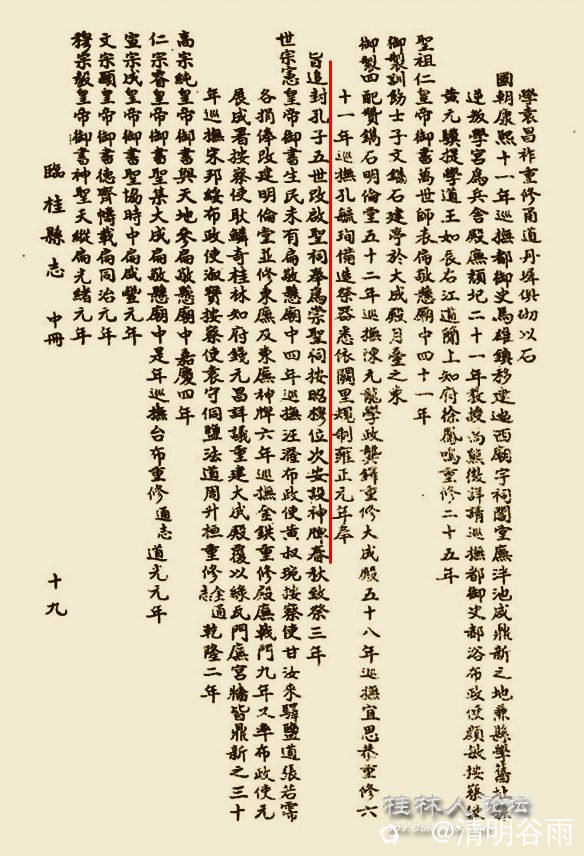 學袁昌祚重修甬道丹墀俱砌以石
國朝康熙十一年巡撫都御史馬雄鎮移建池西廟宇祠閣堂廡泮池咸鼎新之地兼縣學舊址
逆叛學宮爲兵舍殿廡頹圮二十一年教授高熊徵詳請巡撫都御史郝浴布政使顏敏按察使
黃元驥提學道王如辰右江道簡上知府徐鳳鳴重修二十五年
聖祖仁皇帝御書萬世師表匾敬懸廟中四十一年
御製訓飭士子文鐫石建亭於大成殿月臺之東
御製四配贊鐫石明倫堂五十二年巡撫陳元龍學政龔鐸重修大成殿五十八年巡撫宜思恭重修六
十一年巡撫孔毓珣備造祭器悉依闕里規制雍正元年奉
旨追封孔子五世改啟聖祠奉爲崇聖祠按昭穆位次安設神牌春秋致祭三年
世宗憲皇帝御書生民未有扁敬懸廟中四年巡撫汪漋布政使黃叔琬按察使甘汝來驛鹽道張若霈
各捐俸改建明倫堂並修東廡及東廡神牌六年巡撫金鉷重修殿廡戟門九年又率布政使元
展成署按察使耿麟奇桂林知府錢元昌詳議重建大成殿覆以綠瓦門廡宮牆皆鼎新之三十
年巡撫宋邦綏布政使淑寶按察使袁守侗鹽法道周升桓重修金通志乾隆二年
高宗純皇帝御書與天地參扁敬懸廟中嘉慶四年
仁宗睿皇帝御書聖集大成扁敬懸廟中是年巡撫台布重修通志道光元年
宣宗成皇帝御書聖協時中扁咸豐元年
文宗顯皇帝御書德齊幬載扁同治元年
穆宗毅皇帝御書神聖天縱扁光緒元年
臨桂縣志 中冊 十九
桂林人论坛
@清明谷雨